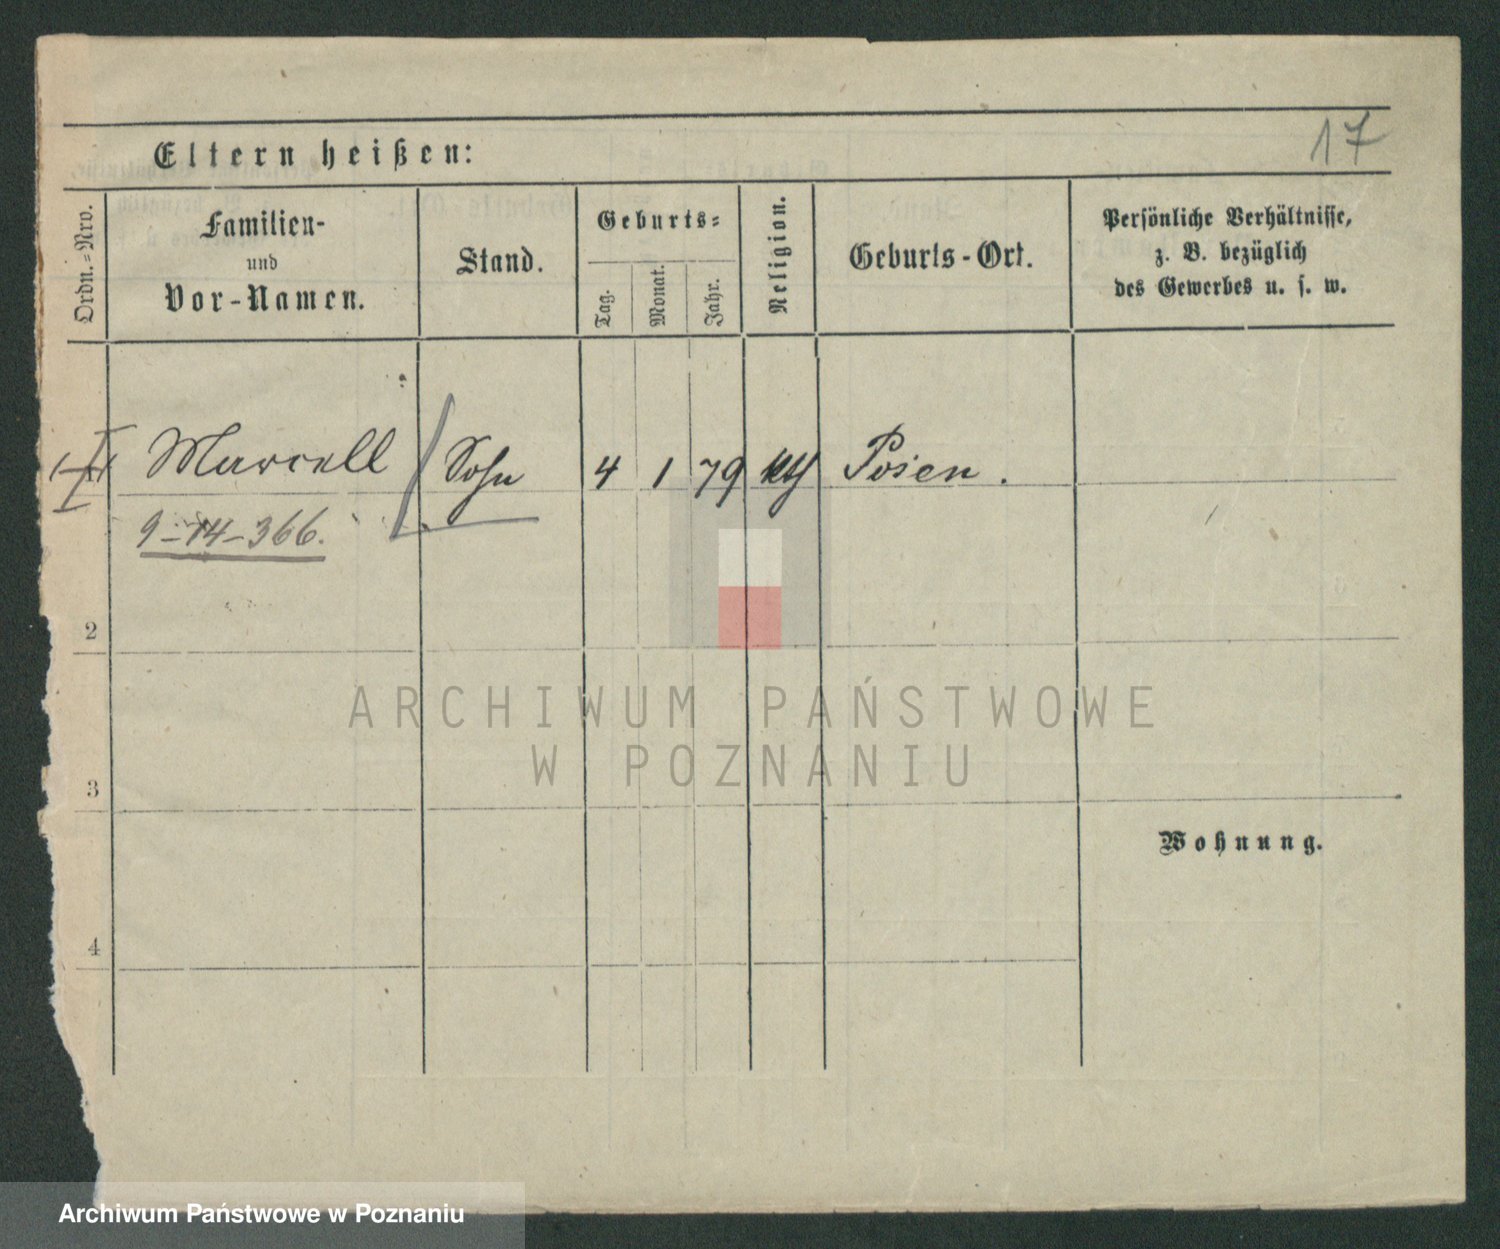 17
Eltern heißen:
Ordn.=Nro.
Familien-
und
Vor-Namen.
Stand.
Geburts=
Tag.
Monat.
Jahr.
Religion.
Geburts-Ort.
Persönliche Verhältnisse,
z. B. bezüglich
des Gewerbes u. s. w.
Marcell Sohn 4 1 79 kth Posen.
9-14-366.
2
3
4
Wohnung.
ARCHIWUM PAŃSTWOWE
W POZNANIU
Archiwum Państwowe w Poznaniu